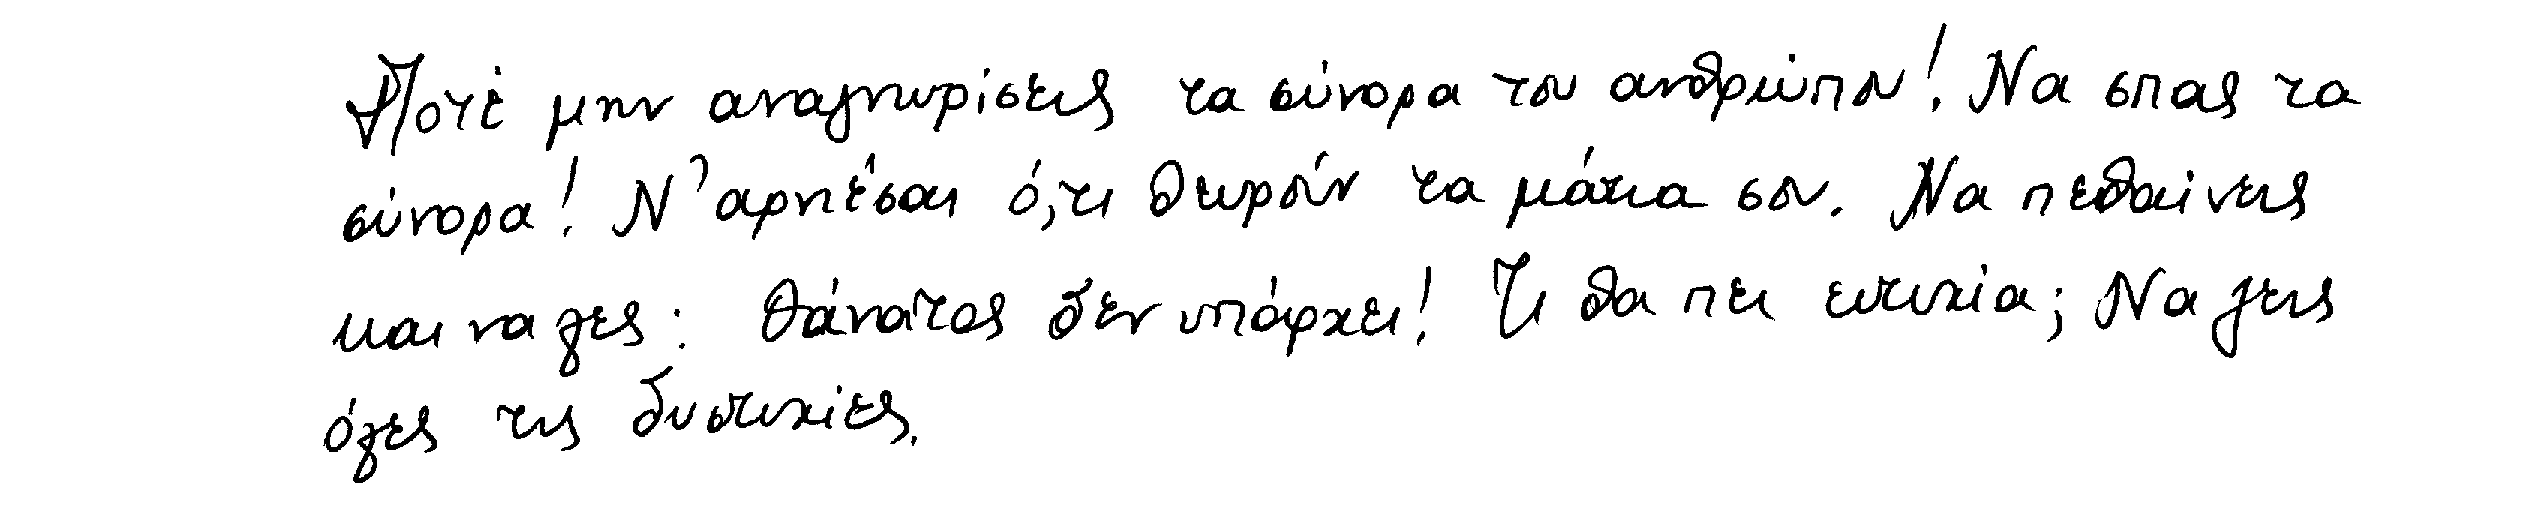 Ποτέ μην αναγνωρίσεις τα σύνορα του ανθρώπου! Να σπας τα
σύνορα! Ν' αρνιέσαι ό,τι θωρούν τα μάτια σου. Να πεθαίνεις
και να λες: Θάνατος δεν υπάρχει! Τι θα πει ευτυχία; Να ζεις
όλες τις δυστυχίες.